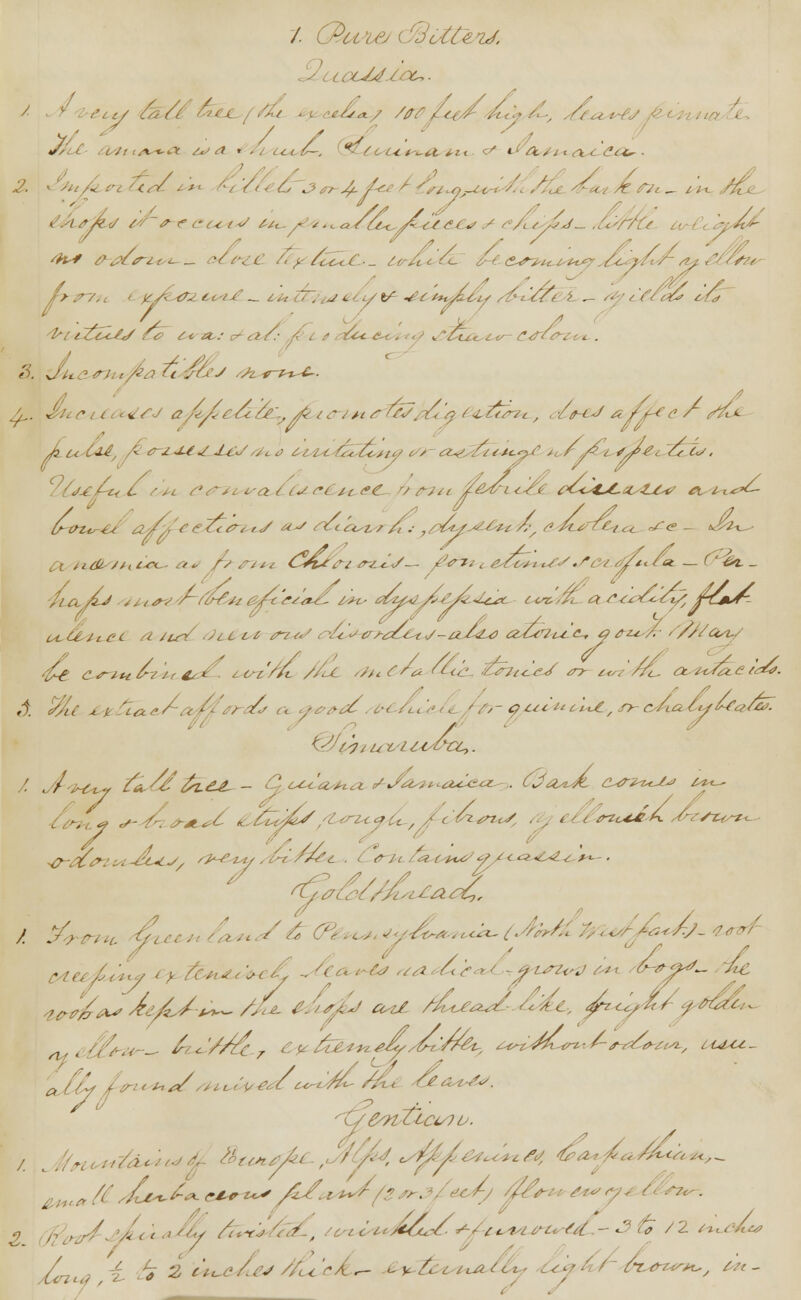 1. Pure Bitters.
Quassia.
1. A very tall tree (the excelsa) 100 feet high, leaves pinnate.
The amara is a shrub. Surinam & Jamaica.
2. Imported in billets 3 or 4 feet long, with the bark on - in the
shops it occurs in smaller pieces & chips - little weight
no odour - close texture - white becoming light yellow
from exposure - intensely & simply bitter - yields its
virtues to wa: & al: producing straw colour.
3. Incompatibles none.
4. Increases appetite, promotes digestion, does affect the
pulse, possesses no irritating or astringent properties.
Useful in convalescence from febrile diseases and
bowel affections as diarrh:, dysent:, cholera &c - In
anæmia as from Chlorosis - sometimes scrofula - Per-
haps most beneficial in dyspepsia with acidity, flat-
ulence and nervous disorders - also atonic gout. May
be combined with the metallic tonics or with antacids.
5. The extract affords a good vehicle for quinine, or chalybeates.
Simaruba.
1. A very tall tree - Guiana & Jamaica. Bark comes in
long & broad strips, rough, fibrous, yellowish brown
odourless, very bitter. Contains quassin.
Goldthread.
1. From Greenland to Pennsylvania (North West part) - root
creeping extensively - leaves radical - grows in bogs - the
root as kept in the shops are thread like, bright golden
yellow - brittle, extremely bitter, without odour, usu-
ally found mixed with the leaves.
Gentian.
1. Mountains of Europe, Alps, Appenines, Carpathian, -
small herbaceous plant (2 or 3 feet) flowers yellow.
2. Root spirally twisted, wrinkled & furrowed - 3 to 12 inches
long, ½ to 2 inches thick - externally light brown, in-